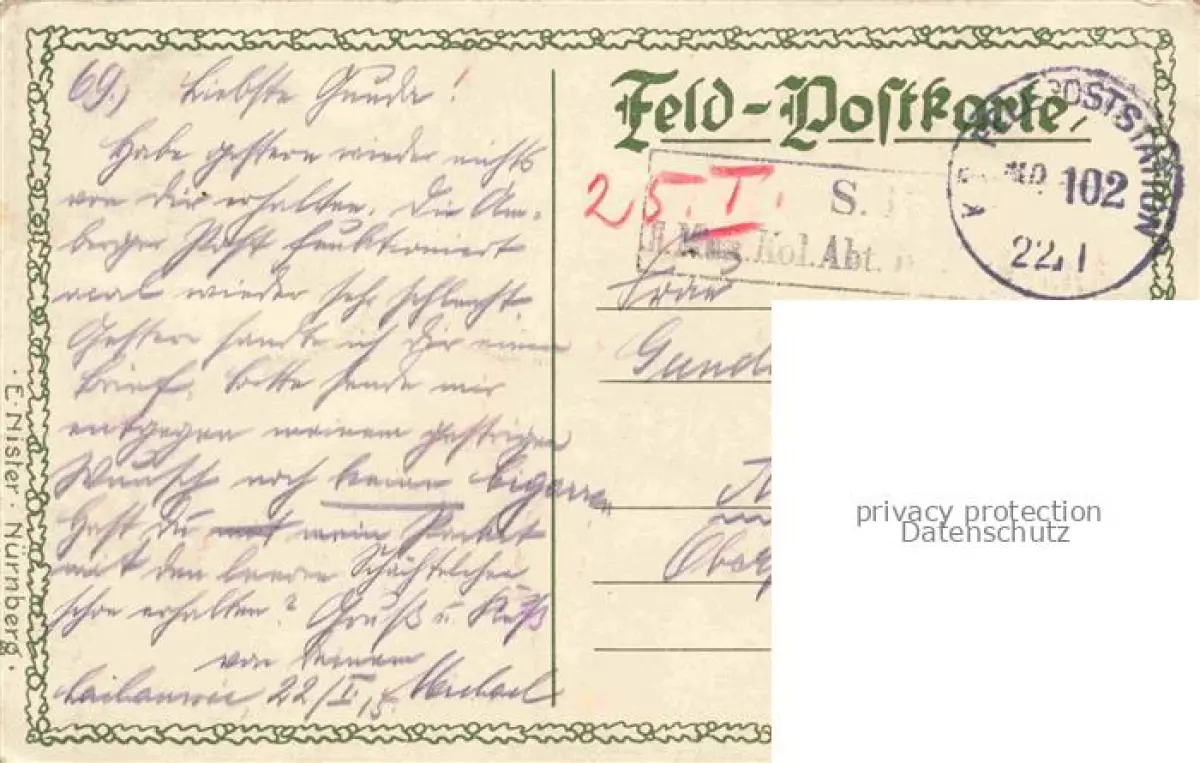 69.) Liebste Gunda!
Habe gestern wieder nichts
von dir erhalten. Die Am-
berger Post funktioniert
mal wieder sehr schlecht.
Gestern sandte ich dir einen
Brief, bitte sende mir
entgegen meinem gestrigen
Wunsch noch keine Cigarren
Hast du mein Packet
mit den leeren Schächtelchen
schon erhalten? Gruß u. Kuß
von deinem
22/I. 15 Michael
Feld-Postkarte
25.I.
S.
Mun. Kol. Abt.
K. FELDPOSTSTATION
NO. 102
22. I
Frau
Gunda
privacy protection
Datenschutz
· E. Nister · Nürnberg ·